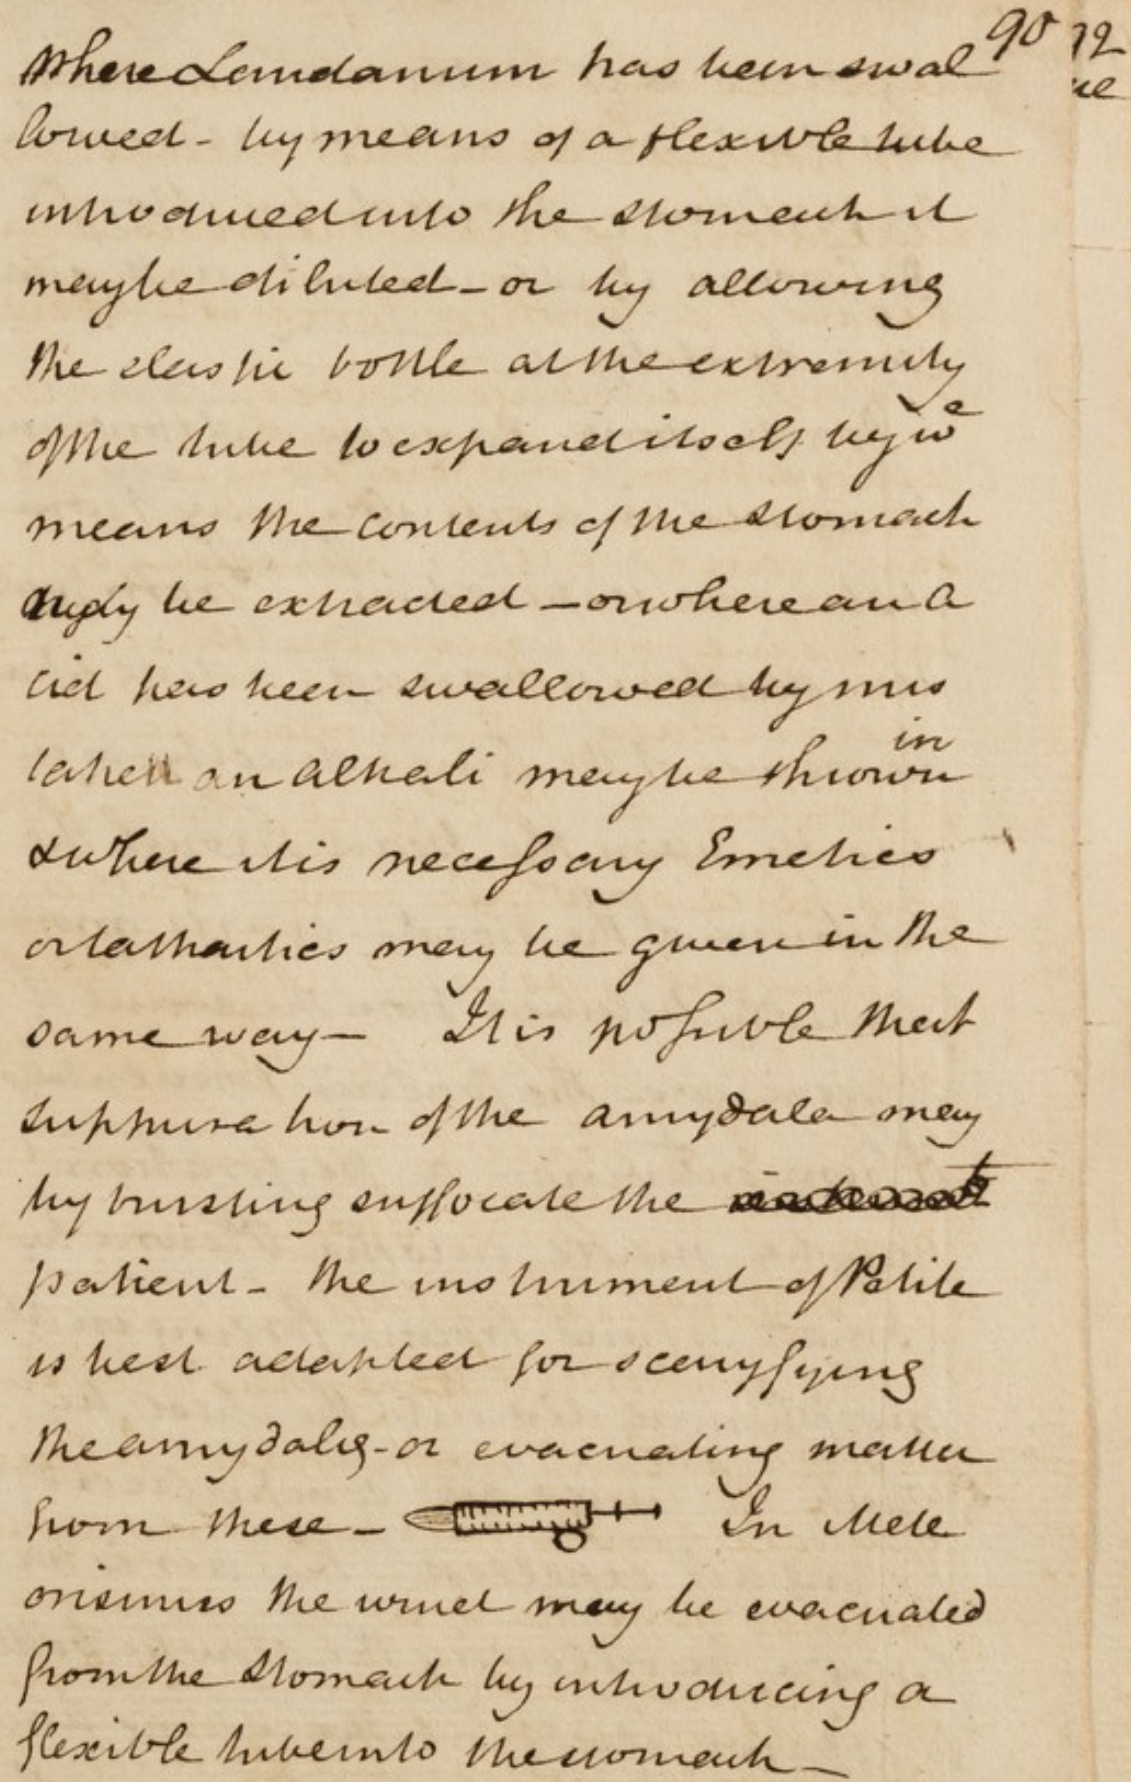 90
Where Laudanum has been swal
lowed - by means of a flexible tube
introduced into the stomach it
may be diluted - or by allowing
the elastic bottle at the extremity
of the tube to expand itself by wᵉ
means the contents of the stomach
may be extracted - or where an a
cid has been swallowed by mis
take an alkali may be thrown in
& where it is necessary Emetics
or Cathartics may be given in the
same way - It is possible that
suppuration of the amydala may
by bursting suffocate the
patient - the instrument of Petite
is best adapted for scarryfying
the amydalæ - or evacuating matter
from these - In Mete
orismus the wind may be evacuated
from the stomach by introducing a
flexible tube into the stomach -